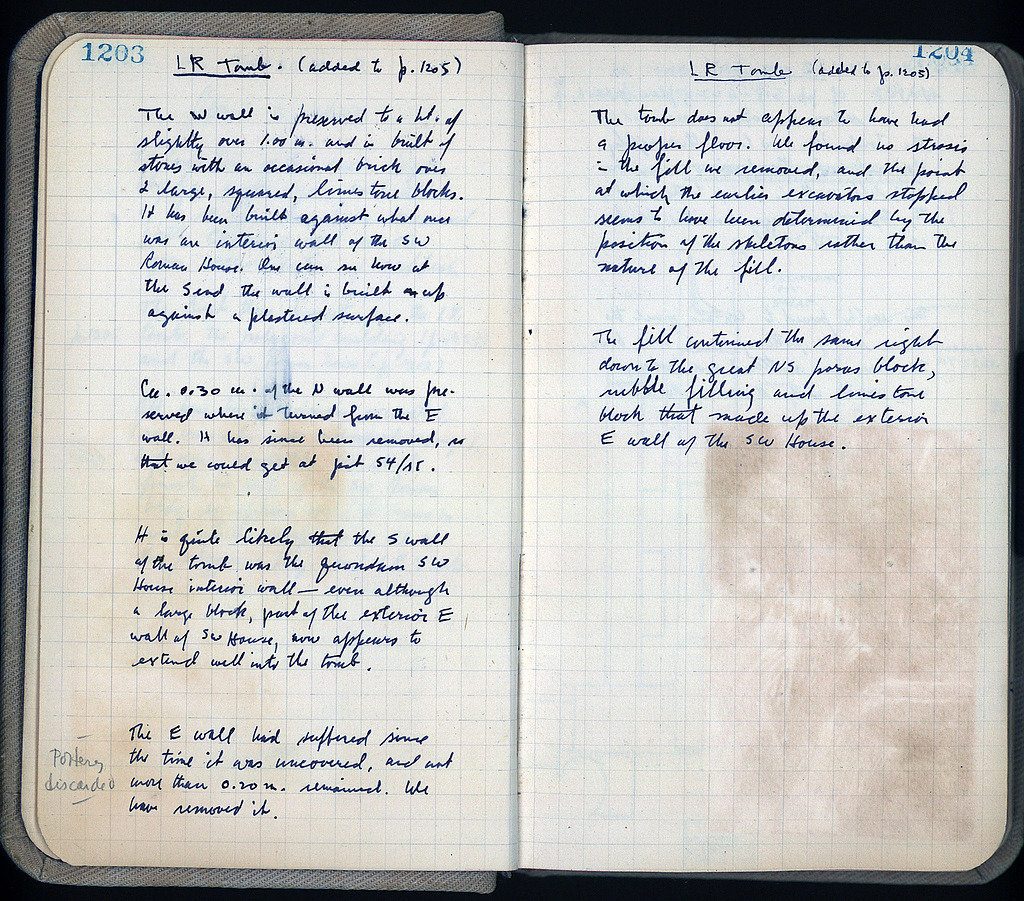 1203
LR Tomb. (added to p. 1205)
The W wall is preserved to a ht. of
slightly over 1.00 m. and is built of
stones with an occasional brick over
2 large, squared, limestone blocks.
It has been built against what once
was an interior wall of the SW
Roman House. One can see how at
the S end the wall is built up
against a plastered surface.
Ca. 0.30 m. of the N wall was pre-
served where it turned from the E
wall. It has since been removed, so
that we could get at pit 54/15.
It is quite likely that the S wall
of the tomb was the quondam SW
House interior wall — even although
a large block, part of the exterior E
wall of SW House, now appears to
extend well into the tomb.
Pottery
discarded
The E wall had suffered since
the time it was uncovered, and not
more than 0.20 m. remained. We
have removed it.
1204
LR Tomb (added to p. 1205)
The tomb does not appear to have had
a proper floor. We found no strosis
in the fill we removed, and the point
at which the earlier excavators stopped
seems to have been determined by the
position of the skeletons rather than the
nature of the fill.
The fill continued the same right
down to the great NS poros block,
rubble filling and limestone
block that made up the exterior
E wall of the SW House.